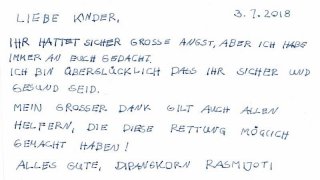 LIEBE KINDER, 3.7.2018
IHR HATTET SICHER GROSSE ANGST, ABER ICH HABE
IMMER AN EUCH GEDACHT.
ICH BIN ÜBERGLÜCKLICH DASS IHR SICHER UND
GESUND SEID.
MEIN GROSSER DANK GILT AUCH ALLEN
HELFERN, DIE DIESE RETTUNG MÖGLICH
GEMACHT HABEN!
ALLES GUTE, DIPANGKORN RASMIJOTI